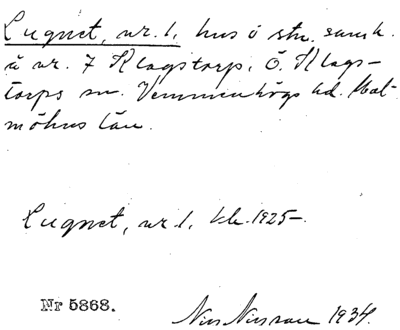 Lugnet, nr. 1, hus ö stn. samh.
å nr. 7 Klagstorp, Ö. Klags-
torps sn. Vemmenhögs hd. Mal-
möhus län.
Lugnet, nr. 1, kk. 1925-.
Nr 5868.
Nils Nilsson 1934.